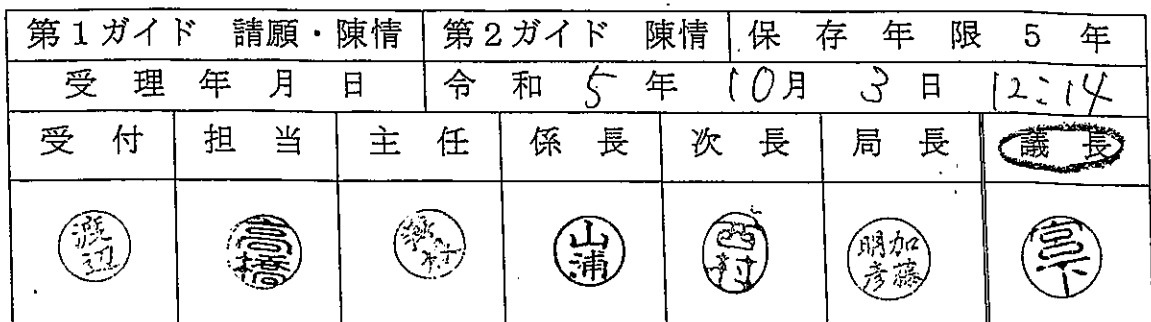 第1ガイド 請願・陳情 第2ガイド 陳情 保存年限 5年
受理年月日 令和 5年 10月 3日 12:14
受付 担当 主任 係長 次長 局長 議長
渡辺 高橋 山浦 西村 加藤明彦 宮下